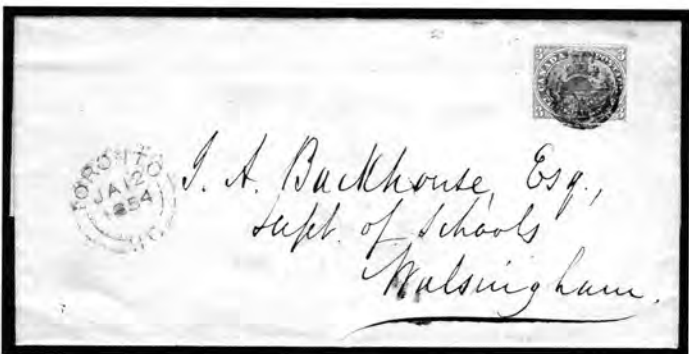 CANADA POSTAGE
3 3
TORONTO
JA 12
1854
U.C.
J. A. Backhouse, Esq.,
Supt. of Schools
Walsingham.